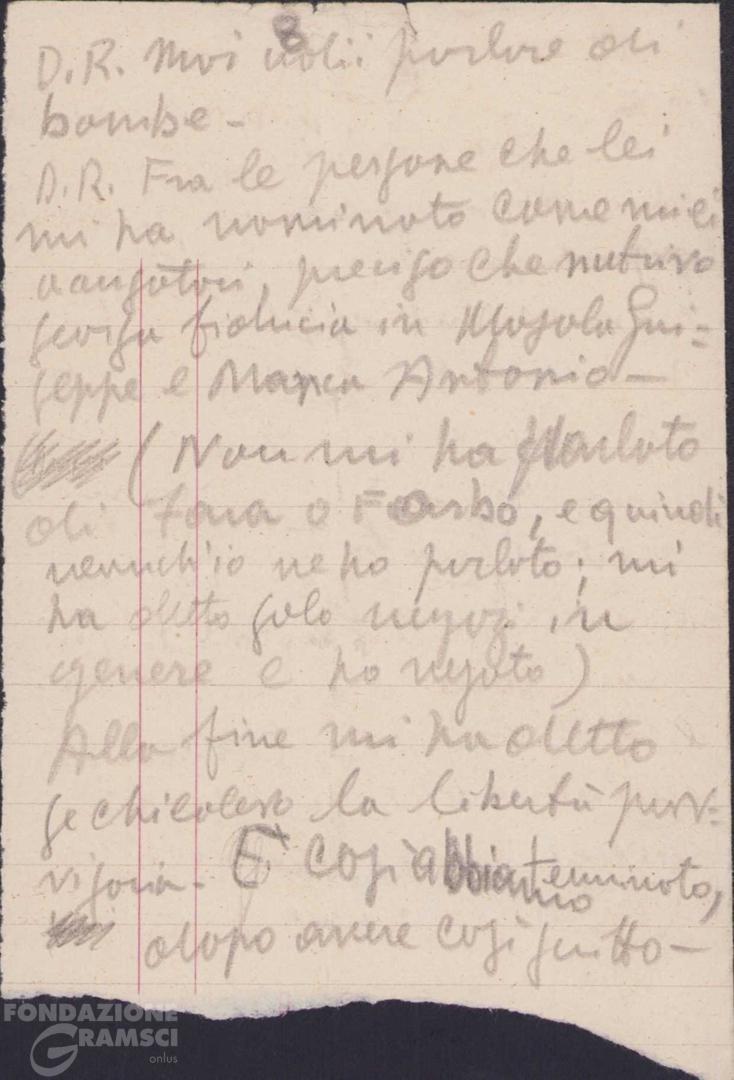 8
D.R. Mai udii parlare di
bombe -
D.R. Fra le persone che lei
mi ha nominato come miei
accusatori, preciso che nutrivo
scarsa fiducia in Giu=
seppe e Antonio -
(Non mi ha parlato
di o , e quindi
neanch'io ne ho parlato; mi
ha detto solo negozi in
genere e ho negato)
Alla fine mi ha detto
se chiedevo la libertà provv=
visoria. E così abbiamo terminato,
dopo avere così scritto -
FONDAZIONE
GRAMSCI
onlus